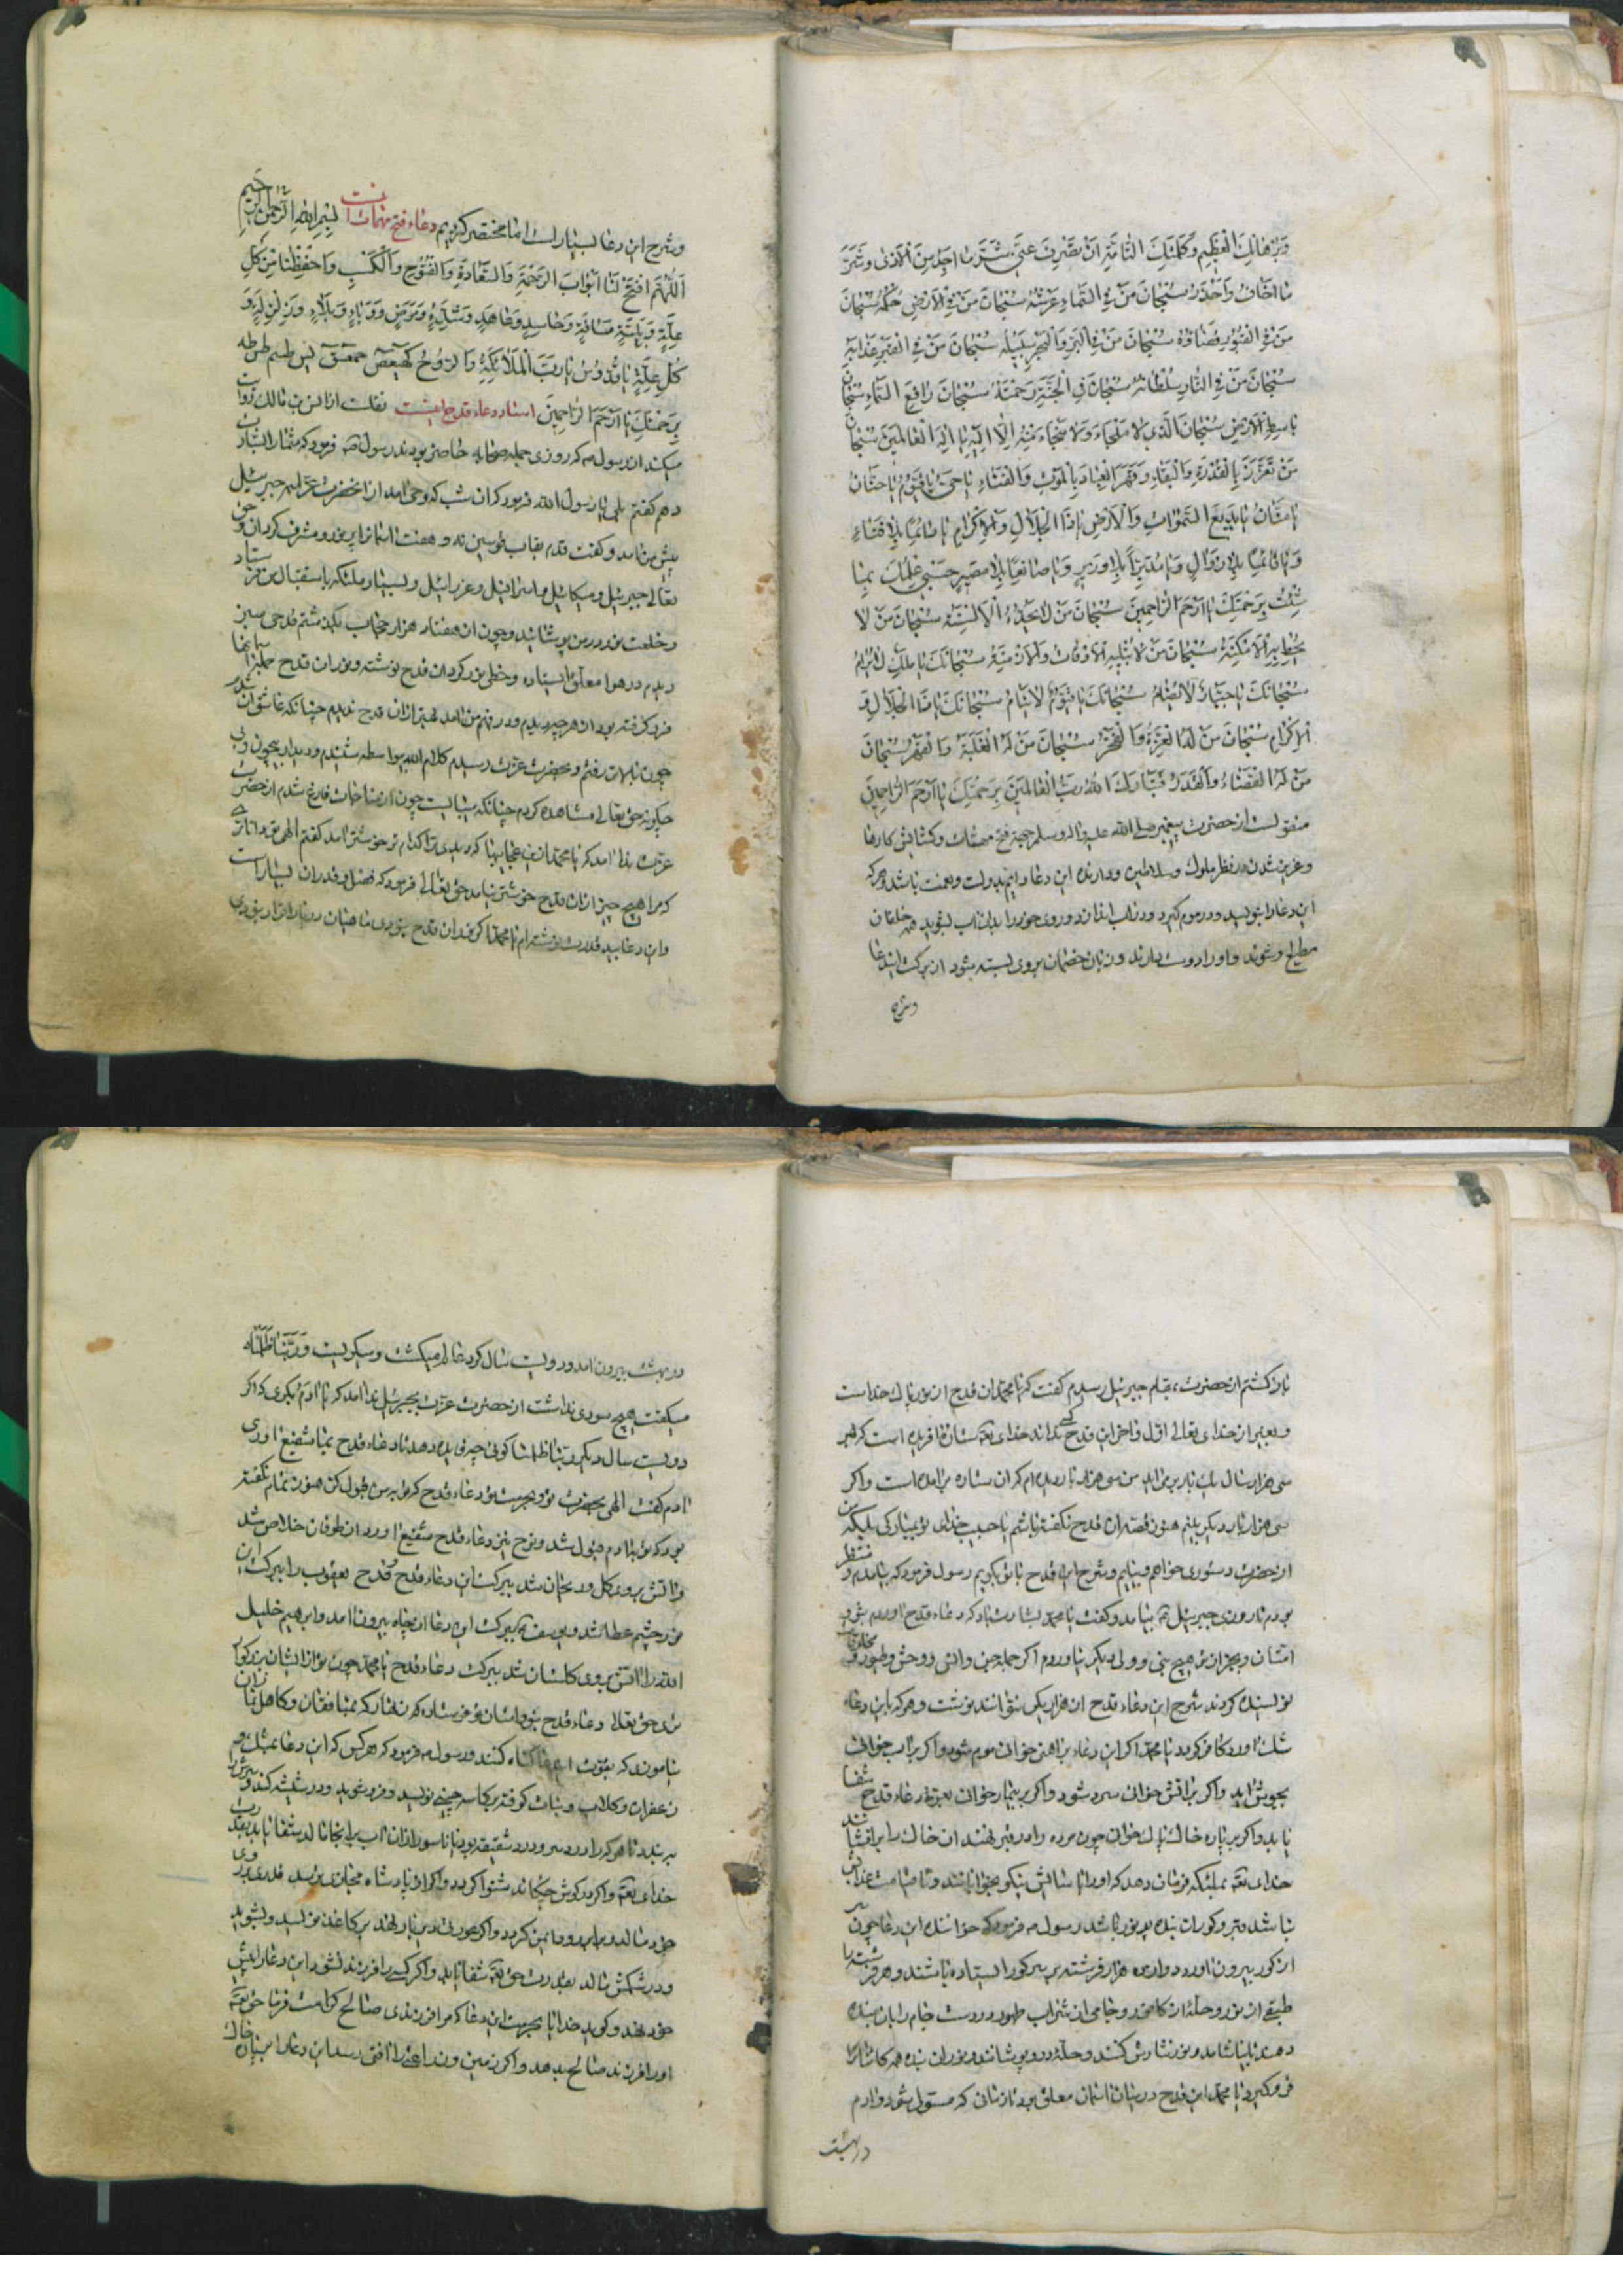 وَبُرْهَانِكَ الْعَظِيمِ وَكَلِمَتِكَ التَّامَّةِ اَنْ تَصْرِفَ عَنِّي شَرَّ مَا اَجِدُ مِنَ الْاَذٰى وَشَرَّ
مَا اَخَافُ وَاَحْذَرُ سُبْحَانَ مَنْ فِي السَّمَاءِ عَرْشُهُ سُبْحَانَ مَنْ فِي الْاَرْضِ حُكْمُهُ سُبْحَانَ
مَنْ فِي الْقُبُورِ قَضَاؤُهُ سُبْحَانَ مَنْ فِي الْبَرِّ وَالْبَحْرِ سَبِيلُهُ سُبْحَانَ مَنْ فِي الْقَبْرِ عَذَابُهُ
سُبْحَانَ مَنْ فِي النَّارِ سُلْطَانُهُ سُبْحَانَ فِي الْجَنَّةِ رَحْمَتُهُ سُبْحَانَ رَافِعِ السَّمَاءِ سُبْحَانَ
بَاسِطِ الْاَرْضِ سُبْحَانَ الَّذِي لَا مَلْجَاءَ وَلَا مَنْجَاءَ مِنْهُ اِلَّا اِلَيْهِ يَا اِلٰهَ الْعَالَمِينَ سُبْحَانَ
مَنْ تَعَزَّزَ بِالْقُدْرَةِ وَالْبَقَاءِ وَقَهَرَ الْعِبَادَ بِالْمَوْتِ وَالْفَنَاءِ يَا حَيُّ يَا قَيُّومُ يَا حَنَّانُ
يَا مَنَّانُ يَا بَدِيعَ السَّمٰوَاتِ وَالْاَرْضِ يَا ذَا الْجَلَالِ وَالْاِكْرَامِ يَا دَائِمًا بِلَا فَنَاءٍ
وَيَا قَائِمًا بِلَا زَوَالٍ وَيَا مُدَبِّرًا بِلَا وَزِيرٍ وَيَا صَانِعًا بِلَا مُصِيرٍ حَسْبِي عِلْمُكَ بِمَا
شِئْتَ بِرَحْمَتِكَ يَا اَرْحَمَ الرَّاحِمِينَ سُبْحَانَ مَنْ لَا يَحُدُّهُ الْاَلْسِنَةُ سُبْحَانَ مَنْ لَا
يُحِيطُ بِهِ الْاَمْكِنَةُ سُبْحَانَ مَنْ لَا يُبْلِيهِ الْاَوْقَاتُ وَالْاَزْمِنَةُ سُبْحَانَكَ يَا مَلِكُ لَا يُرَامُ
سُبْحَانَكَ يَا جَبَّارُ لَا يُضَامُ سُبْحَانَكَ يَا قَيُّومُ لَا يَنَامُ سُبْحَانَكَ يَا ذَا الْجَلَالِ وَ
الْاِكْرَامِ سُبْحَانَ مَنْ لَهُ الْعِزَّةُ وَالْفَخْرُ سُبْحَانَ مَنْ لَهُ الْغَلَبَةُ وَالْقَهْرُ سُبْحَانَ
مَنْ لَهُ الْقَضَاءُ وَالْقَدَرُ فَتَبَارَكَ اللهُ رَبُّ الْعَالَمِينَ بِرَحْمَتِكَ يَا اَرْحَمَ الرَّاحِمِينَ
منقولست از حضرت پیغمبر صلی الله علیه واله وسلم جهة فتح مهمات و کشایش کارها
و عزیز شدن در نظر ملوک و سلاطین و دارنده این دعا دایم بدولت و نعمت باشد و هر که
این دعا را بنویسد و در موم گیرد و در آب اندازد و روی خود را بدان آب بشوید همه خلقان
مطیع او شوند و او را دوست دارند و زبان خصمان بر وی بسته شود از برکت ایندعا
وشرح
وشرح این دعا بسیار است اما مختصر کردیم دعاء فتح مهمات اینست بِسْمِ اللهِ الرَّحْمٰنِ الرَّحِيمِ
اَللّٰهُمَّ افْتَحْ لَنَا اَبْوَابَ الرَّحْمَةِ وَالسَّعَادَةِ وَالْفُتُوحِ وَالْكَسْبِ وَاحْفَظْنَا مِنْ كُلِّ
عِلَّةٍ وَبَلِيَّةٍ وَحَاسِدٍ وَشِدَّةٍ وَمَرَضٍ وَوَبَاءٍ وَبَلَاءٍ وَزَلْزَلَةٍ وَ
كُلِّ عِلَّةٍ يَا قُدُّوسُ يَا رَبَّ الْمَلَائِكَةِ وَالرُّوحِ كهيعص حمعسق يس طسم طس طه
بِرَحْمَتِكَ يَا اَرْحَمَ الرَّاحِمِينَ اسناد دعاء قدح اینست نقلست از انس بن مالک روایت
میکند از رسول ص که روزی جمله صحابه حاضر بودند رسول ص فرمود که شما را بشارت
دهم گفتم بلی یا رسول الله فرمود که آن شب که وحی آمد از انحضرت عزّ اسمه جبرئیل
پیش من آمد و گفت قدم بقاب قوسین نه و هفت آسمانرا پر نور و مشرف کردان و حق
تعالی جبرئیل و میکائیل و اسرافیل و عزرائیل و بسیار ملئکه باستقبال من فرستاد
و خلعت نور در من پوشانید و چون از هفتاد هزار حجاب بگذشتم قدحی سبز
دیدم در هوا معلق ایستاده و خطی نور کرد آن قدح نوشته و نور آن قدح جمله را
فرو گرفته بود از هر چه دیدم و در نهم من آمد بهتر از آن قدح ندیدم چنانکه عاشق آن شدم
چون بالاتر رفتم و بحضرت عزت رسیدم کلام الله بیواسطه شنیدم و دیدار بیچون و بی
چکونه حق تعالی مشاهده کردم چنانکه ببایست چون از مناجات فارغ شدم از حضرت
عزت ندا آمد که یا محمد از این عجایبها که دیدی ترا کدام تر خوشتر آمد گفتم الهی تو داناتری
که مرا هیچ چیز از آن قدح خوشتر نیامد حق تعالی فرمود که فضل و قدر آن بسیار است
و این دعا بید قدرت نوشته‌ام یا محمد اگر نه آن قدح بودی
باز کشتم از حضرت بمقام جبرئیل رسیدم گفت که یا محمد آن قدح از نور پاک خداست
و بغیر از خدای تعالی اول و آخر این قدح کسی نداند خدای تع ستاره آفریده است که هر
سی هزار سال یک بار بر می‌آید من سی هزار بار دیده‌ام که آن ستاره بر آمده است و اکر
سی هزار بار دیگر ببینم هنوز قصه آن قدح نگفته باشم یا حبیب خدای تو بمبارکی بلکه من
از حضرت دستوری خواهم و بیایم و شرح این قدح با تو بگویم رسول فرمود که بیامدم و منتظر
بودم تا روزی جبرئیل ع بیامد و گفت یا محمد بشارت باد که دعاء قدح آوردم بتو و
امتان و بجز از تو هیچ نبی و ولی دیگر نیاوردم اگر جمله جن و انس و وحش و طیور و مخلوقات
نویسنده کردند شرح این دعاء قدح از هزار یکی نتوانند نوشت و هر که باین دعاء
شک آورد کافر کردد یا محمد اگر این دعا بر آهن خوانی موم شود و اکر بر آب خوانی
بجوش آید و اکر بر آتش خوانی سرد شود و اکر بر بیمار خوانی بعزت دعاء قدح شفا
یابد و اکر بر پاره خاک پاک خوانی چون مرده را در قبر نهند آن خاک را بر افشانند
خدای تع بملئکه فرمان دهد که او را بآسایش نیکو بخوابانند و تا قیامت عذابش
نباشد و بر و کور آن بنده پر نور باشد رسول ص فرمود که خواننده این دعا چون سر
از کور بیرون آورد دوازده هزار فرشته بر سر کور ایستاده باشند و هر فرشته را
طبقی از نور و حله از کافور و جامی از شراب طهور در دست جام را بآن بنده
دهند تا بیاشامد و نور نثارش کنند و حله در و پوشانند و نور آن بنده همه کائنات را
فرو گیرد یا محمد این قدح در میان آسمان معلق بود تا زمانی که مستولی شود و آدم
در بهشت
در بهشت بیرون آمد و دویست سال کرد عالم میکشت و میکریست وَرَبَّنَا ظَلَمْنَا
میگفت هیچ سودی نداشت از حضرت عزت بجبرئیل ندا آمد که با آدم بگوی که اکر
دویست سال دیگر ربنا ظلمنا گوئی چه فایده دهد تا دعاء قدح بما شفیع آوری
آدم گفت الهی بحضرت تو و بحرمت تو دعاء قدح که توبه من قبول کن هنوز تمام نگفته
بود که توبه آدم قبول شد و نوح نیز دعاء قدح شفیع آورد از طوفان خلاص شد
و آتش بر وی گل و ریحان شد ببرکت این دعاء قدح یعقوب را ببرکت این
نور چشم عطا شد و یوسف ع ببرکت این دعا از چاه بیرون آمد و ابرهیم خلیل
الله را آتش بر وی گلستان شد ببرکت دعاء قدح یا محمد چون تو از ایشان بزرگوار
تری حق تعالی دعاء قدح بتو و امتان تو فرستاده که زنهار که بمنافقان و کاهل نمازان
نیاموزی که بقوت این دعا گناه کنند و رسول ص فرمود که هر کس که این دعا بمشک و
زعفران و کلاب و نبات کوفته بر کاسه چینی نویسد و فرو شوید و در شیشه کند و سرش را
به بندد تا هر که را درد سر و درد شقیقه بود یا ناسور از آن آب بر آنجا مالد شفا یابد بقدرت
خدای تع و اکر در کوش چکاند شنوا کردد و اکر از پادشاه مجازی ترسد قدری بر وی
خود مالد و برابر رود ایمن کردد و اکر عورتی دیر بار نهد بر کاغذ نویسد و بشوید
و در شکمش مالد بقدرت حق تع شفا یابد و اکر کسی را فرزند نشود این دعا را پیش
خود نهد و گوید خدایا بحرمت این دعا که مرا فرزندی صالح کرامت فرما حق تع
او را فرزند صالح بدهد و اکر زمین و زراعتی را آفتی رسد این دعا را بر پاره خاک